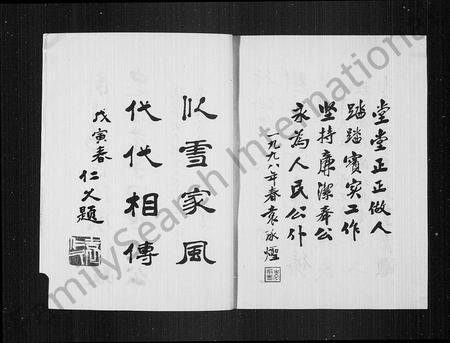 堂堂正正做人
踏踏實实工作
坚持廉潔奉公
永為人民公仆
一九九八年春袁冰燈
似雪家風
代代相傳
戊寅春 仁久題
FamilySearch International